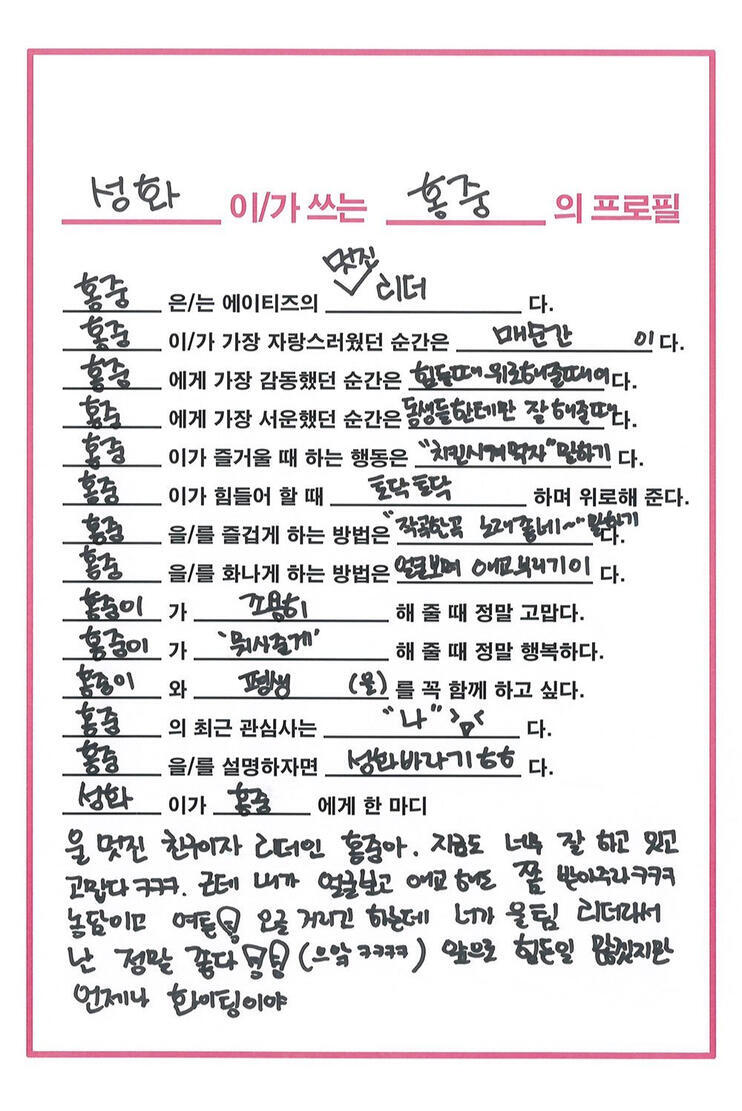 성화 이/가 쓰는 홍중 의 프로필
멋진
홍중 은/는 에이티즈의 리더 다.
홍중 이/가 가장 자랑스러웠던 순간은 매순간 이 다.
홍중 에게 가장 감동했던 순간은 힘들때 위로해줄때이다.
홍중 에게 가장 서운했던 순간은 동생들한테만 잘해줄때다.
홍중 이가 즐거울 때 하는 행동은 "치킨시켜먹자" 말하기 다.
홍중 이가 힘들어 할 때 토닥토닥 하며 위로해 준다.
홍중 을/를 즐겁게 하는 방법은 "작곡한곡 노래좋네~" 말하기 다.
홍중 을/를 화나게 하는 방법은 얼굴보며 애교부리기이 다.
홍중이 가 조용히 해 줄 때 정말 고맙다.
홍중이 가 '뭐사줄게' 해 줄 때 정말 행복하다.
홍중이 와 평생 (을) 를 꼭 함께 하고 싶다.
홍중 의 최근 관심사는 "나" 다.
홍중 을/를 설명하자면 성화바라기ㅎㅎ 다.
성화 이가 홍중 에게 한 마디
울 멋진 친구이자 리더인 홍중아. 지금도 너무 잘 하고 있고
고맙다 ㅋㅋㅋ. 근데 내가 얼굴보고 애교해도 쫌 받아주라ㅋㅋㅋ
농담이고 여튼 오글 거리고 하는데 너가 울팀 리더라서
난 정말 좋다 (으악 ㅋㅋㅋㅋ) 앞으로 힘든일 많겠지만
언제나 화이팅이야